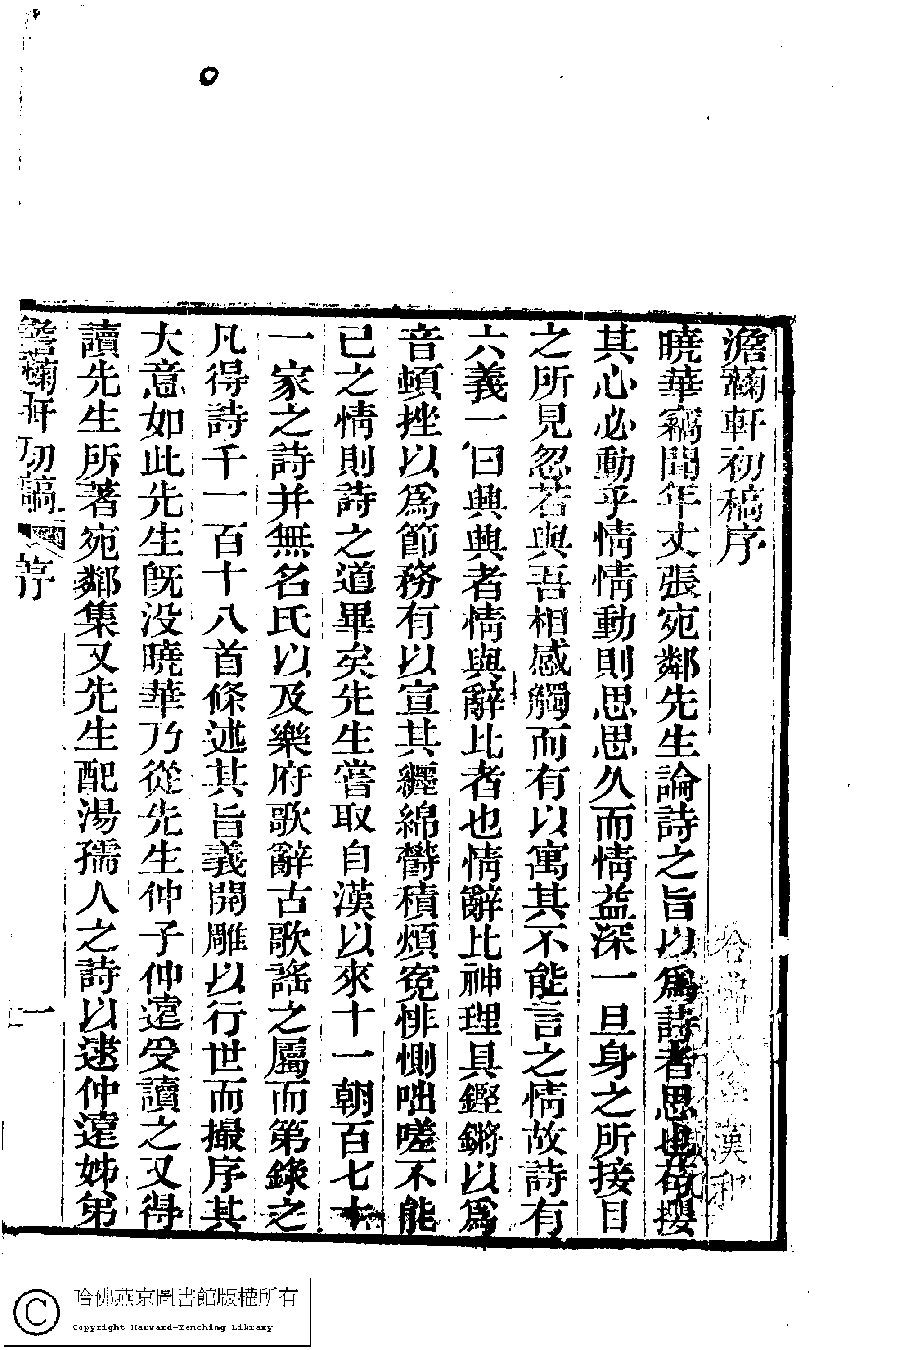 澹蘜軒初稿序
曉華竊聞年丈張宛鄰先生論詩之旨以爲詩者思也苟攖
其心必動乎情情動則思思久而情益深一旦身之所接目
之所見忽若與吾相感觸而有以寓其不能言之情故詩有
六義一曰興興者情與辭比者也情辭比神理具鏗鏘以爲
音頓挫以爲節務有以宣其纏綿鬱積煩寃悱惻咄嗟不能
已之情則詩之道畢矣先生嘗取自漢以來十一朝百七十
一家之詩并無名氏以及樂府歌辭古歌謠之屬而第錄之
凡得詩千一百十八首條述其旨義開雕以行世而撮序其
大意如此先生旣没曉華乃從先生仲子仲遠受讀之又得
讀先生所著宛鄰集又先生配湯孺人之詩以逮仲遠姊弟
澹蘜軒初稿 序 一
哈佛大學漢和
哈佛燕京圖書館版權所有
Copyright Harvard-Yenching Library